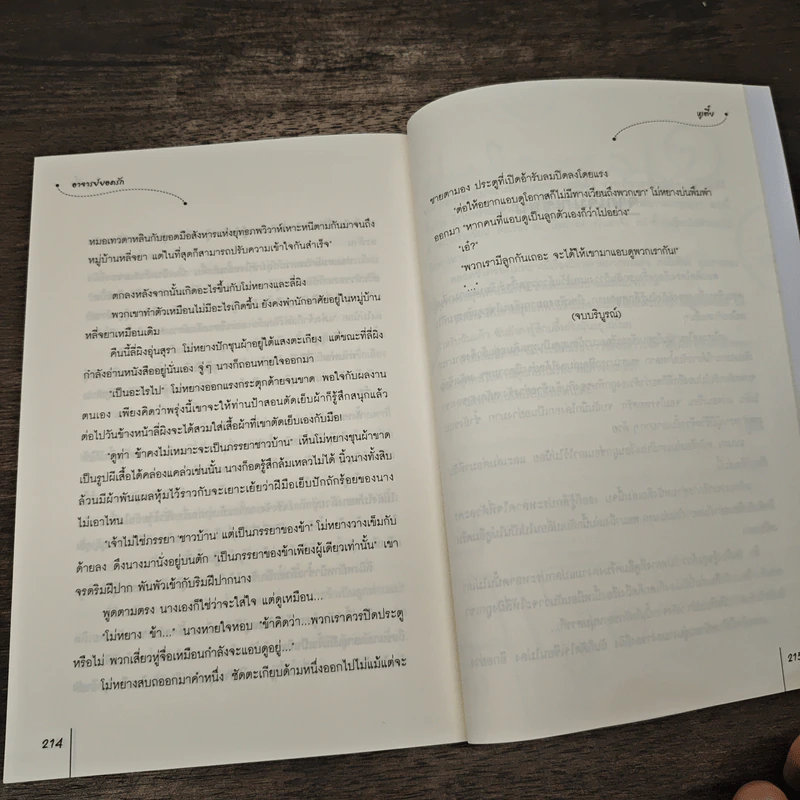 อาจารย์ยอดรัก
หมอเทวดาหลินกับยอดมือสังหารแห่งยุทธภพวิวาห์เหาะหนีตามกันมาจนถึง
หมู่บ้านหลี่จยา แต่ในที่สุดก็สามารถปรับความเข้าใจกันสำเร็จ"
ตกลงหลังจากนั้นเกิดอะไรขึ้นกับโม่หยางและลี่ผิง
พวกเขาทำตัวเหมือนไม่มีอะไรเกิดขึ้น ยังคงพำนักอาศัยอยู่ในหมู่บ้าน
หลี่จยาเหมือนเดิม
คืนนี้ลี่ผิงอุ่นสุรา โม่หยางปักชุนผ้าอยู่ใต้แสงตะเกียง แต่ขณะที่ลี่ผิง
กำลังอ่านหนังสืออยู่นั่นเอง จู่ๆ นางก็ถอนหายใจออกมา
"เป็นอะไรไป" โม่หยางออกแรงกระตุกด้ายจนขาด พอใจกับผลงาน
ตนเอง เพียงคิดว่าพรุ่งนี้เขาจะให้ท่านป้าสอนตัดเย็บผ้าก็รู้สึกสนุกแล้ว
ต่อไปวันข้างหน้าลี่ผิงจะได้สวมใส่เสื้อผ้าที่เขาตัดเย็บเองกับมือ!
"ดูท่า ข้าคงไม่เหมาะจะเป็นภรรยาชาวบ้าน" เห็นโม่หยางชุนผ้าขาด
เป็นรูปผีเสื้อได้คล่องแคล่วเช่นนั้น นางก็อดรู้สึกล้มเหลวไม่ได้ นิ้วนางทั้งสิบ
ล้วนมีผ้าพันแผลหุ้มไว้ราวกับจะเยาะเย้ยว่าฝีมือเย็บปักถักร้อยของนาง
ไม่เอาไหน
"เจ้าไม่ใช่ภรรยา 'ชาวบ้าน' แต่เป็นภรรยาของข้า" โม่หยางวางเข็มกับ
ด้ายลง ดึงนางมานั่งอยู่บนตัก "เป็นภรรยาของข้าเพียงผู้เดียวเท่านั้น" เขา
จรดริมฝีปาก พันพัวเข้ากับริมฝีปากนาง
พูดตามตรง นางเองก็ใช่ว่าจะใส่ใจ แต่ดูเหมือน...
"โม่หยาง ข้า..." นางหายใจหอบ "ข้าคิดว่า...พวกเราควรปิดประตู
หรือไม่ พวกเสี่ยวหู่จื่อเหมือนกำลังจะแอบดูอยู่..."
โม่หยางสบถออกมาคำหนึ่ง ซัดตะเกียบด้ามหนึ่งออกไปไม่แม้แต่จะ
214
ชายตามอง ประตูที่เปิดอ้ารับลมปิดลงโดยแรง
"ต่อให้อยากแอบดูโอกาสก็ไม่มีทางเวียนถึงพวกเขา" โม่หยางบ่นพึมพำ
ออกมา "หากคนที่แอบดูเป็นลูกตัวเองก็ว่าไปอย่าง"
"เอ๋?"
"พวกเรามีลูกกันเถอะ จะได้ให้เขามาแอบดูพวกเรากัน!"
"..."
(จบบริบูรณ์)
215